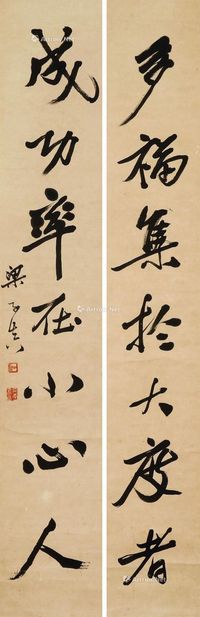 多福集於大度者
成功率在小心人
梁子真